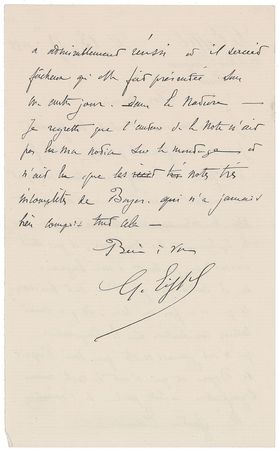 a admirablement réussi et il serait
fâcheux qu'elle fut présentée sous
un autre jour. Dans la Notice —
Je regrette que l'auteur de la Note n'ait
pas lu ma notice sur le montage et
n'ait lu que les très notes très
incomplètes de Boyer qui n'a jamais
bien compris tout cela —
Bien à vous
G. Eiffel